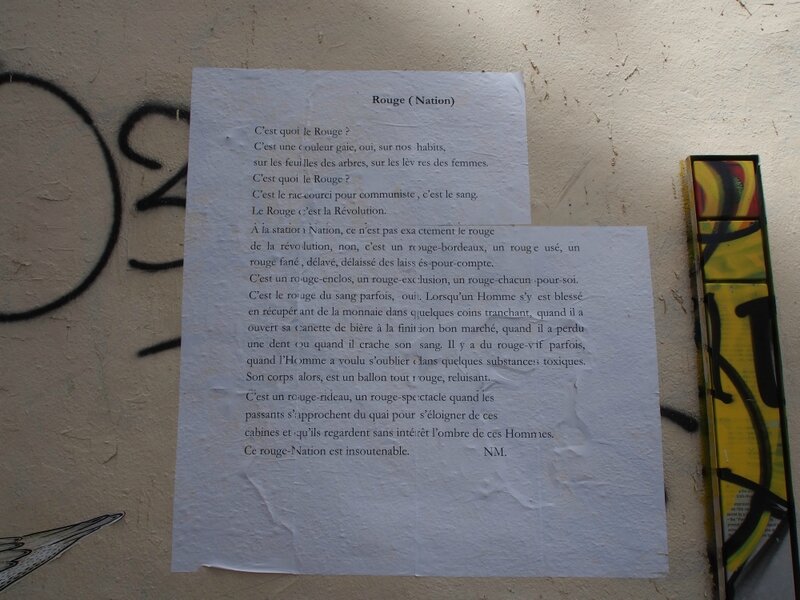 Rouge ( Nation)
C'est quoi le Rouge ?
C'est une couleur gaie, oui, sur nos habits,
sur les feuilles des arbres, sur les lèvres des femmes.
C'est quoi le Rouge ?
C'est le raccourci pour communiste, c'est le sang.
Le Rouge c'est la Révolution.
À la station Nation, ce n'est pas exactement le rouge
de la révolution, non, c'est un rouge-bordeaux, un rouge usé, un
rouge fané, délavé, délaissé des laissés-pour-compte.
C'est un rouge-enclos, un rouge-exclusion, un rouge-chacun-pour-soi.
C'est le rouge du sang parfois, oui. Lorsqu'un Homme s'y est blessé
en récupérant de la monnaie dans quelques coins tranchant, quand il a
ouvert sa canette de bière à la finition bon marché, quand il a perdu
une dent ou quand il crache son sang. Il y a du rouge-vif parfois,
quand l'Homme a voulu s'oublier dans quelques substances toxiques.
Son corps alors, est un ballon tout rouge, reluisant.
C'est un rouge-rideau, un rouge-spectacle quand les
passants s'approchent du quai pour s'éloigner de ces
cabines et qu'ils regardent sans intérêt l'ombre de ces Hommes.
Ce rouge-Nation est insoutenable. NM.